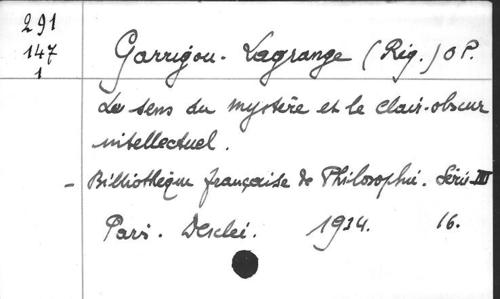 291
147
1
Garrigou-Lagrange (Rég.) O P.
Le sens du mystère et le clair-obscur
intellectuel.
- Bibliothèque française de Philosophie. Série III
Paris. Desclée. 1934. 16.